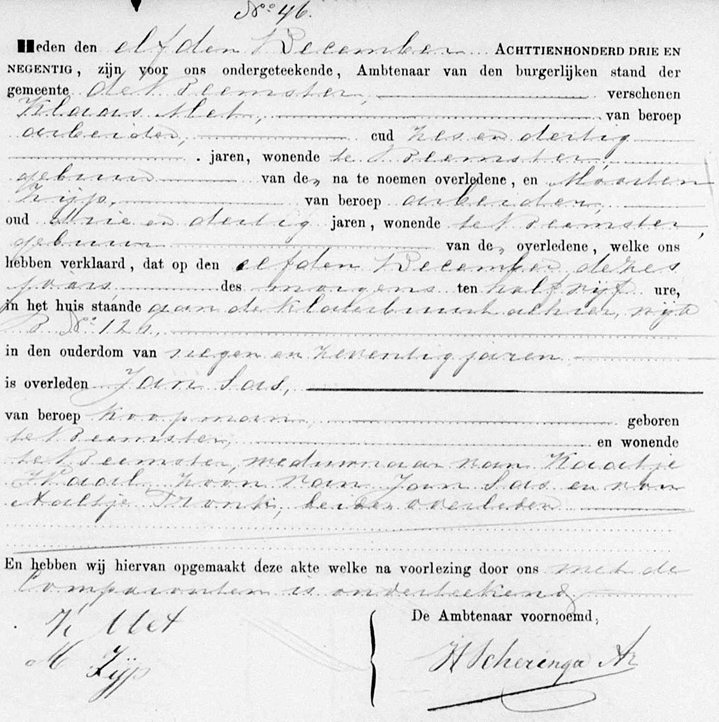 No. 46.
Heden den elfden December ACHTTIENHONDERD DRIE EN
NEGENTIG, zijn voor ons ondergeteekende, Ambtenaar van den burgerlijken stand der
gemeente de Beemster, verschenen
Klaas Met, van beroep
arbeider, oud zes en dertig
jaren, wonende te Beemster,
gebuur van de na te noemen overledene, en Maarten
Zijp, van beroep arbeider,
oud drie en dertig jaren, wonende te Beemster,
gebuur van de overledene, welke ons
hebben verklaard, dat op den elfden December dezes
jaars des morgens ten half vijf ure,
in het huis staande aan de Klaterbuurt achter, wijk
B No. 121,
in den ouderdom van negen en zeventig jaren
is overleden Jan Sas,
van beroep koopman, geboren
te Beemster, en wonende
te Beemster, weduwnaar van Kaatje
zoon van Jan Sas en van
Aaltje Tronk, beiden overleden
En hebben wij hiervan opgemaakt deze akte welke na voorlezing door ons met de
Comparanten is onderteekend,
K Met
De Ambtenaar voornoemd,
M Zijp
H Scheringa Az